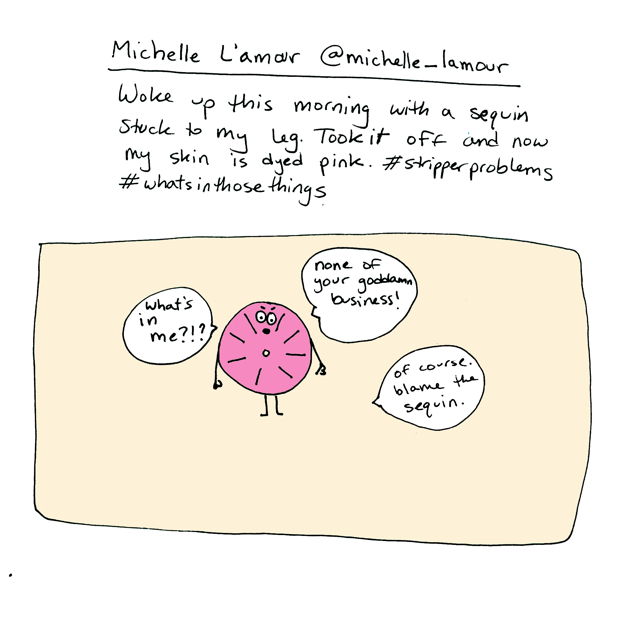 Michelle L'amour @michelle_lamour
Woke up this morning with a sequin
stuck to my leg. Took it off and now
my skin is dyed pink. #stripperproblems
#whatsinthosethings
what's
in
me?!?
none of
your goddamn
business!
of course.
blame the
sequin.